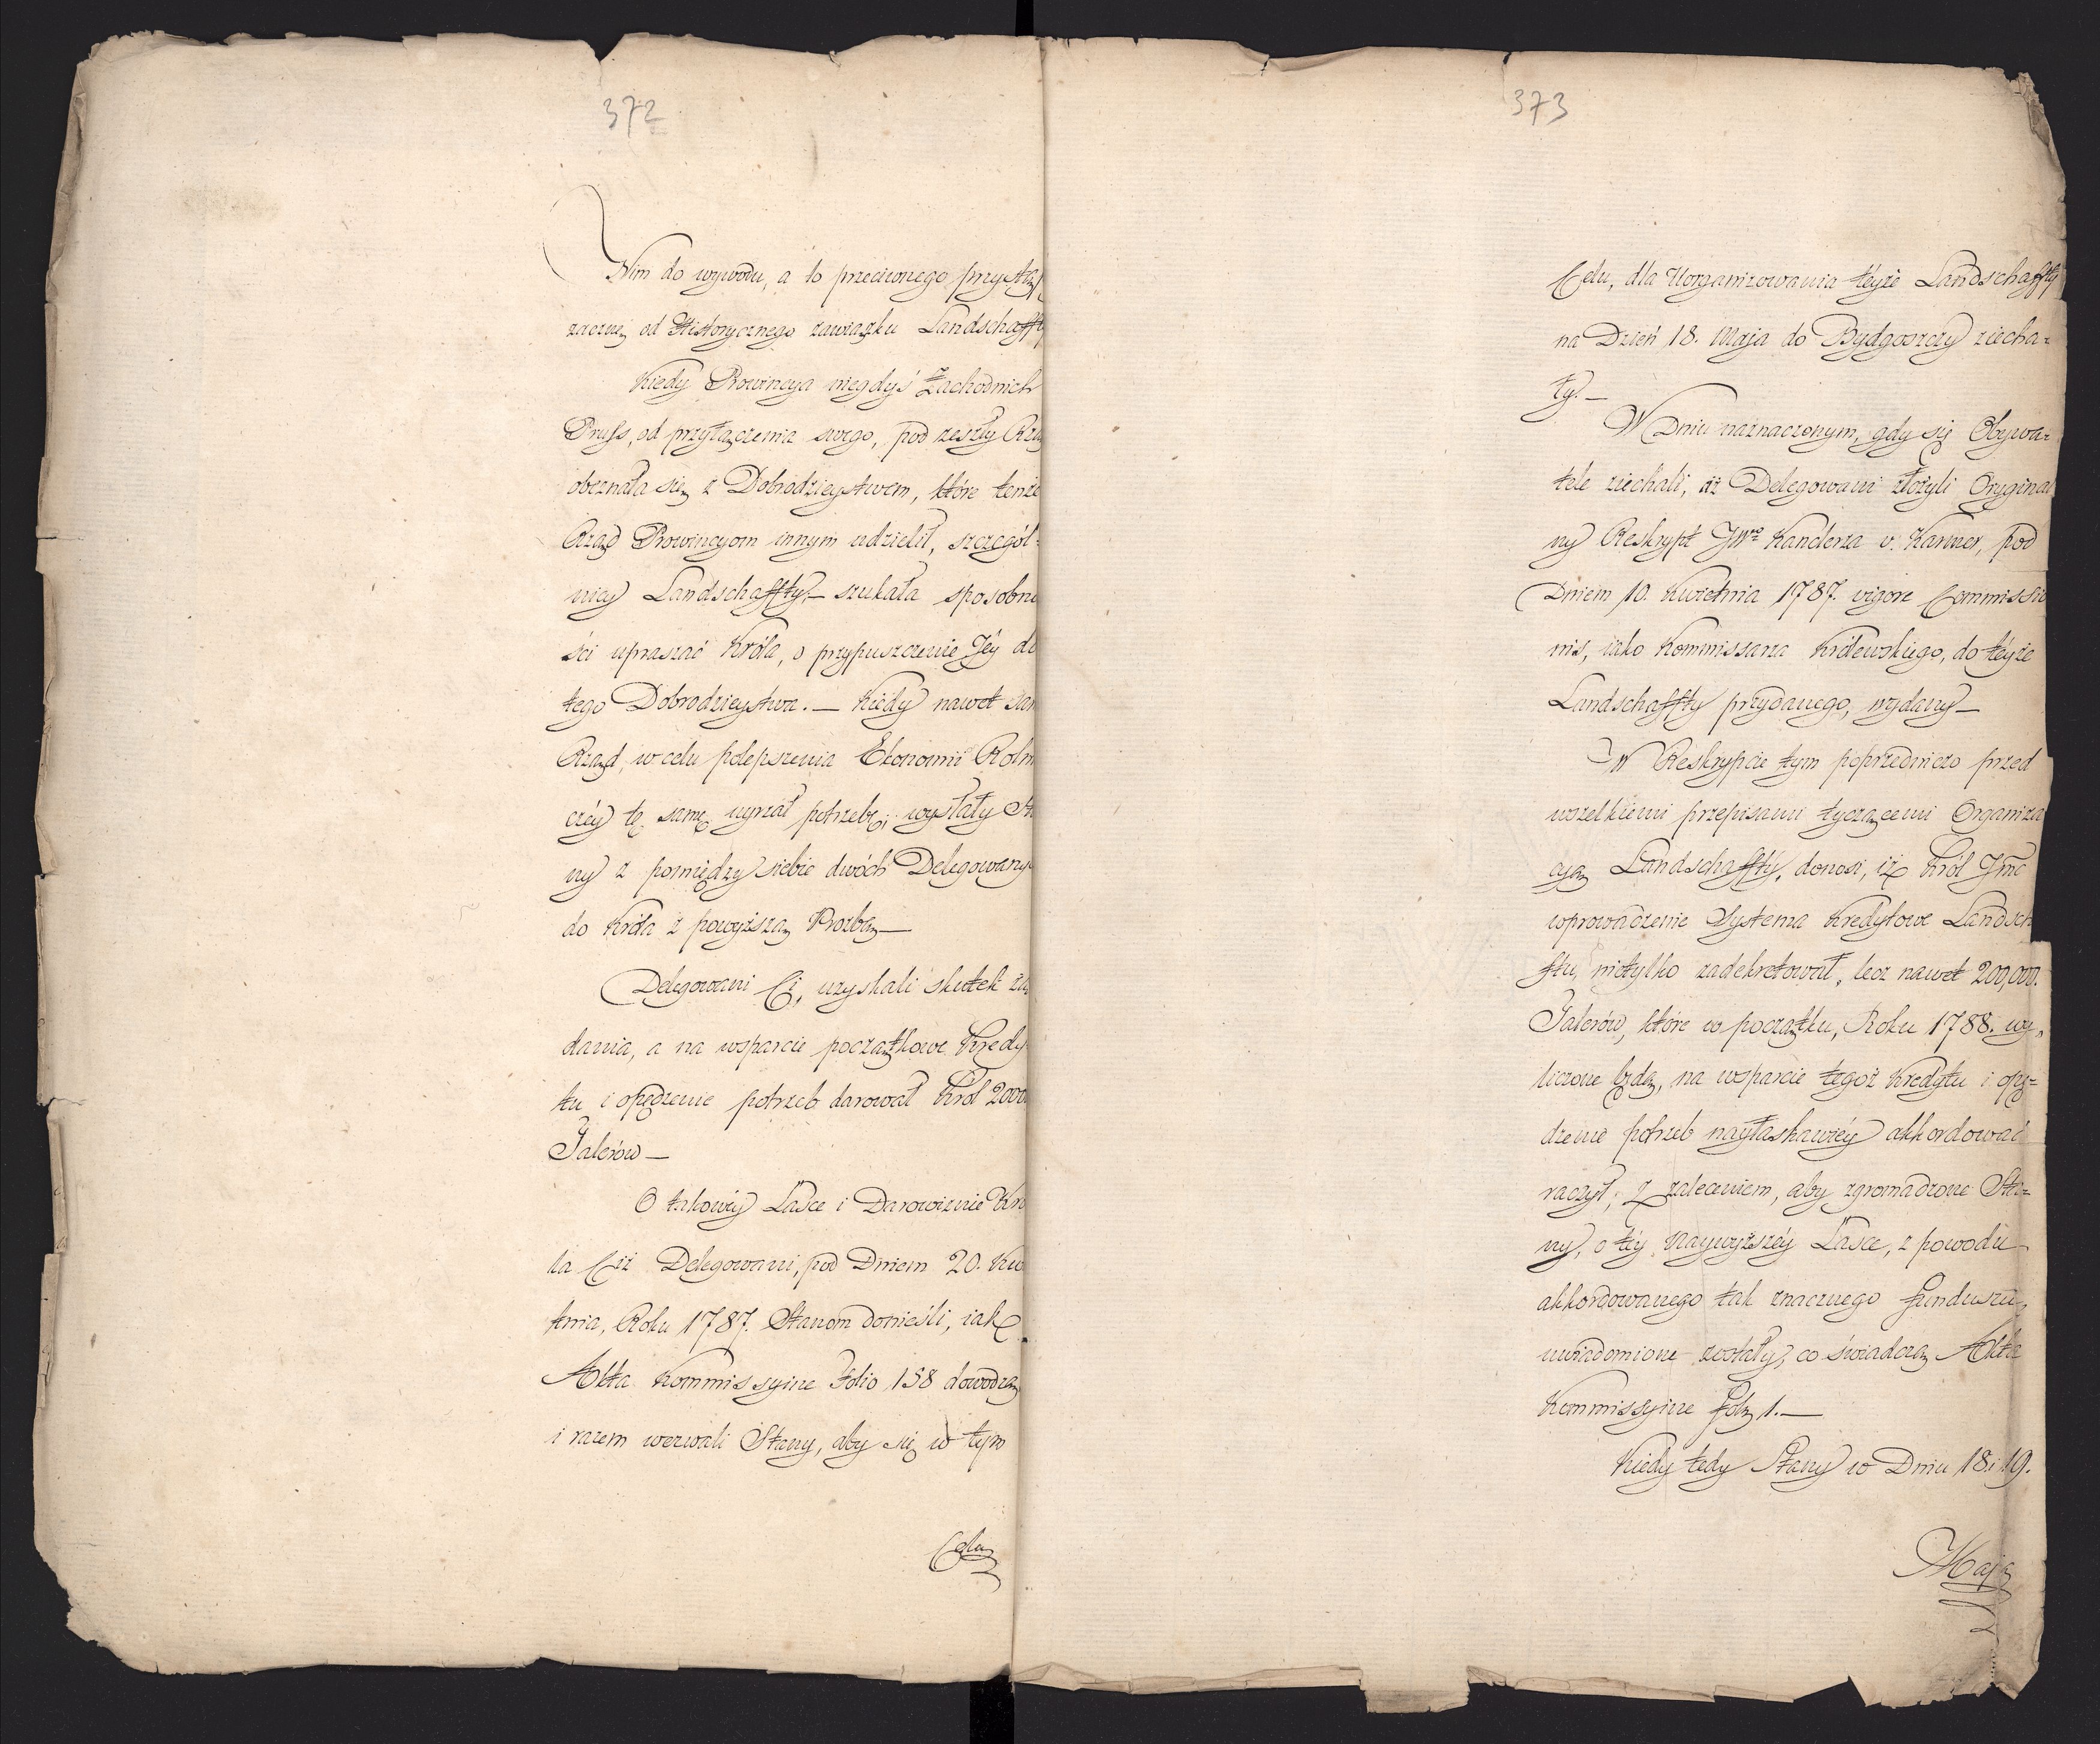 372
Nim do wywodu, a to przeciwnego przystąp
zacznę od Historycznego zawiązku Landschaffty
Kiedy Prowincya niegdyś Zachodnich
Pruss, od przyłączenia swego, pod zeszły Rzą
obeznała się z Dobrodzieystwem, które tenże
Rząd Prowincyom innym udzielił, szczegól=
niey Landschaffty,– szukała sposobno
ści upraszać Króla, o przypuszczenie Jéy do
tego Dobrodzieystwa.– Kiedy nawet sam
Rząd, w celu polepszenia Ekonomii Rolni
czéy tę samę uyrzał potrzebę; wysłały Sta
ny z pomiędzy siebie dwóch Delegowany
do Króla z powyższą Prozbą–
Delegowani Ci, uzyskali skutek żą
dania, a na wsparcie początkowe Kredy
tu i opędzenie potrzeb darował Król 2000
Talerów–
O takowéy Łasce i Darowiznie Kró
la Ciż Delegowani, pod Dniem 20. Kwie
tnia, Roku 1787. Stanom donieśli, iak
Akta Kommissyine Folio 158 dowodzą
i razem wezwali Stany, aby się w tym
Celu,
373
Celu, dla Uorganizowania téyże Landschaffty
na Dzień 18. Maja do Bydgoszczy ziecha=
ły.–
W Dniu naznaczonym, gdy się Obywa=
tele ziechali, ciż Delegowani złożyli Orygina
ny Reskrypt JWgo Kanclerza v. Karmer, pod
Dniem 10. Kwietnia 1787. vigore Commissio
nis, iako Kommissarza Królewskiego, do téyże
Landschaffty przydanego, wydany–
W Reskrypcie tym poprzedniczo przed
wszelkiemi przepisami tyczącemi Organiza
cyą Landschaffty, donosi, iż Król Jmć
wprowadzenie Systema Kredytowe Landscha
fftu, nietylko zadekretował, lecz nawet 200,000.
Talerów, które w początku, Roku 1788. wy=
liczone będą, na wsparcie tegoż Kredytu i opę=
dzenie potrzeb nayłaskawiéy akkordować
raczył; z zaleceniem, aby zgromadzone Sta=
ny, o téy Naywyższéy Łasce, z powodu
akkordowanego tak znacznego funduszu,
uwiadomione zostały, co świadczą Akta
Kommissyine fol. 1.–
Kiedy tedy Stany w Dniu 18. i 19.
Maja